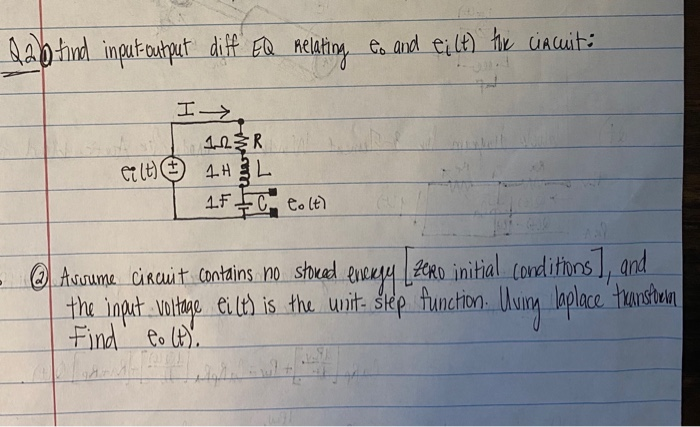 Q2) ① find input-output diff EQ relating e₀ and eᵢ(t) for circuit:
I →
1Ω R
eᵢ(t) ± 1H L
1F C e₀(t)
② Assume circuit contains no stored energy [zero initial conditions], and
the input voltage eᵢ(t) is the unit-step function. Using laplace transform
Find e₀(t).